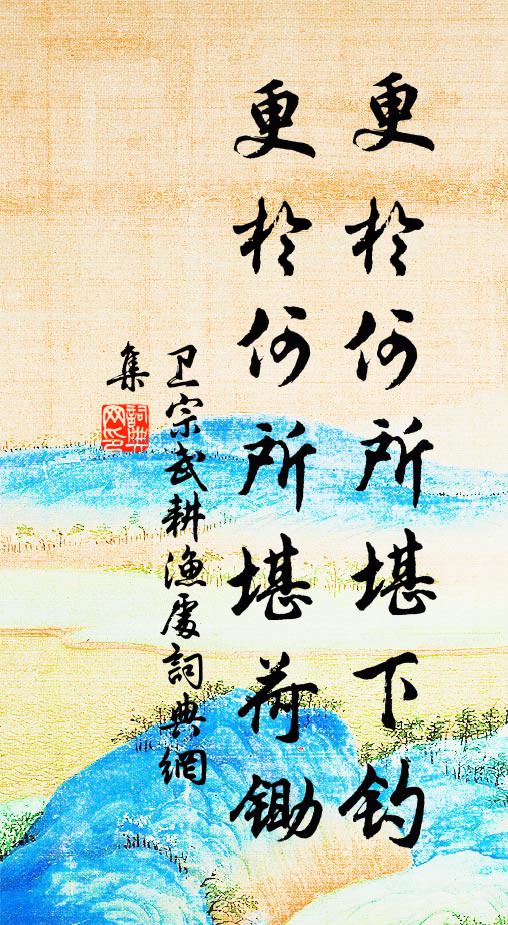 更於何所堪下钓
更於何所堪荷锄
卫宗武耕渔处詞典網
集
詞典網印